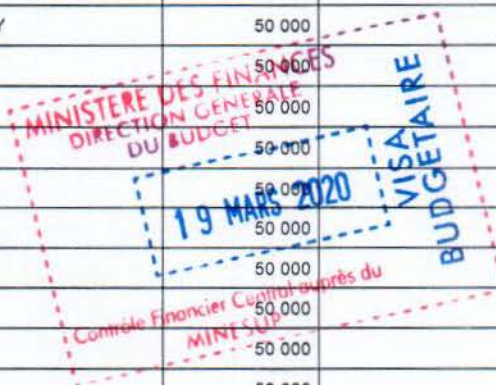 Y 50 000
50 000
50 000
50 000
50 000
50 000
50 000
50 000
50 000
MINISTERE DES FINANCES
DIRECTION GENERALE
DU BUDGET
19 MARS 2020
VISA
BUDGETAIRE
Contrôle Financier Central auprès du
MINESUP